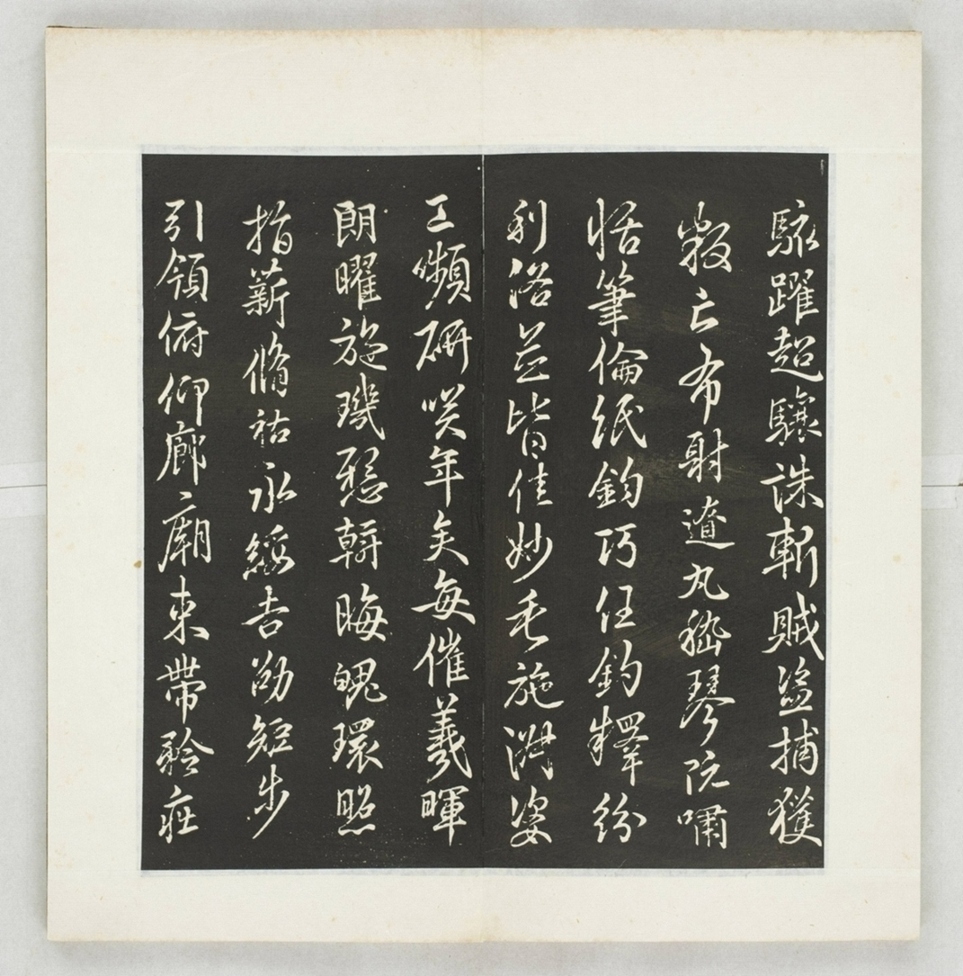 駭躍超驤誅斬賊盜捕獲
叛亡布射遼丸嵇琴阮嘯
恬筆倫紙鈞巧任釣釋紛
利俗並皆佳妙毛施淑姿
工嚬研咲年矢每催羲暉
朗曜旋璣懸斡晦魄環照
指薪脩祜永綏吉劭矩步
引領俯仰廊廟束帶矜莊